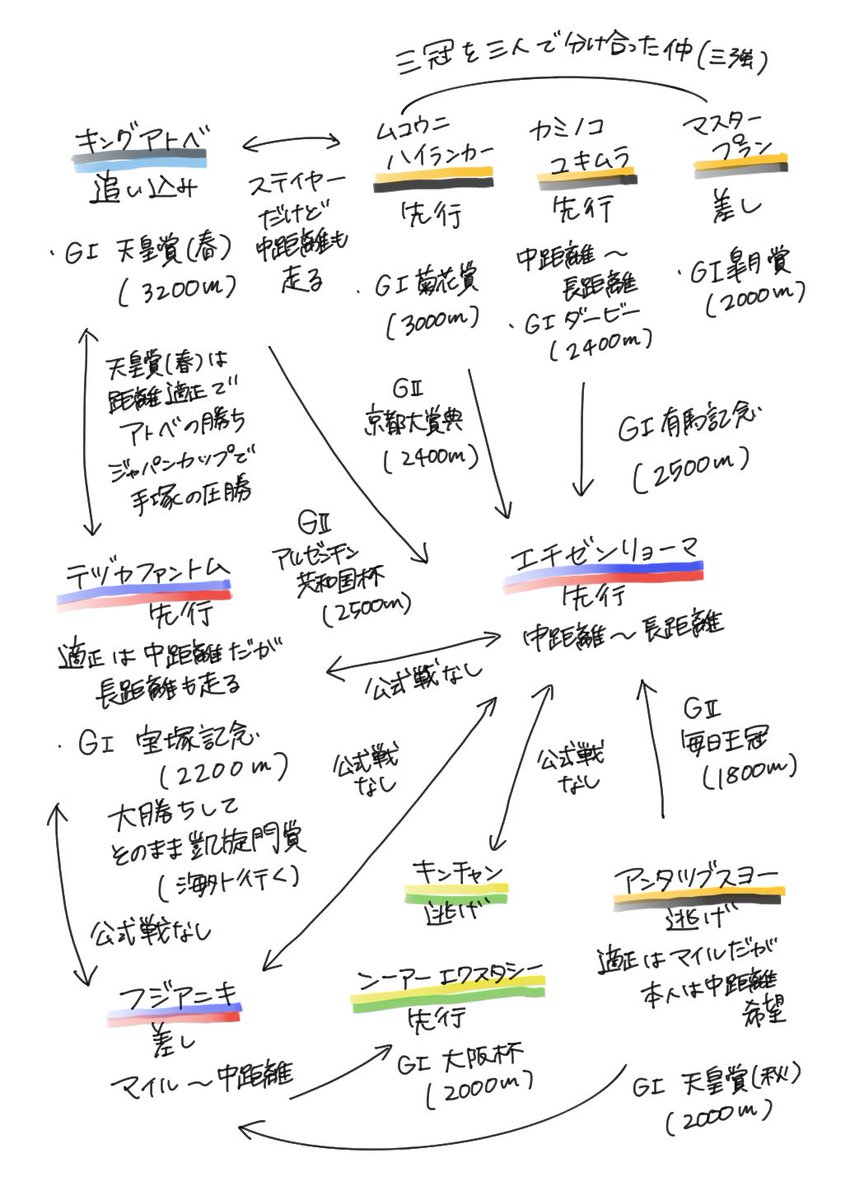 三冠を三人で分け合った仲(三強)
キングアトベ
追い込み
・GI 天皇賞(春)
(3200m)
ステイヤー
だけど
中距離も
走る
ムコウニ
ハイランカー
先行
・GI 菊花賞
(3000m)
カミノコ
ユキムラ
先行
中距離〜
長距離
・GI ダービー
(2400m)
マスター
プラン
差し
・GI 皐月賞
(2000m)
天皇賞(春)は
距離適正で
アトベの勝ち
ジャパンカップで
手塚の圧勝
GII
京都大賞典
(2400m)
GI 有馬記念
(2500m)
GII
アルゼンチン
共和国杯
(2500m)
テヅカファントム
先行
適正は中距離だが
長距離も走る
・GI 宝塚記念
(2200m)
大勝ちして
そのまま凱旋門賞
(海外行く)
エチゼンリョーマ
先行
中距離〜長距離
公式戦なし
公式戦
なし
公式戦
なし
GII
毎日王冠
(1800m)
公式戦なし
キンチャン
逃げ
アンタツブスヨー
逃げ
適正はマイルだが
本人は中距離
希望
フジアニキ
差し
マイル〜中距離
ンーアーエクスタシー
先行
GI 大阪杯
(2000m)
GI 天皇賞(秋)
(2000m)